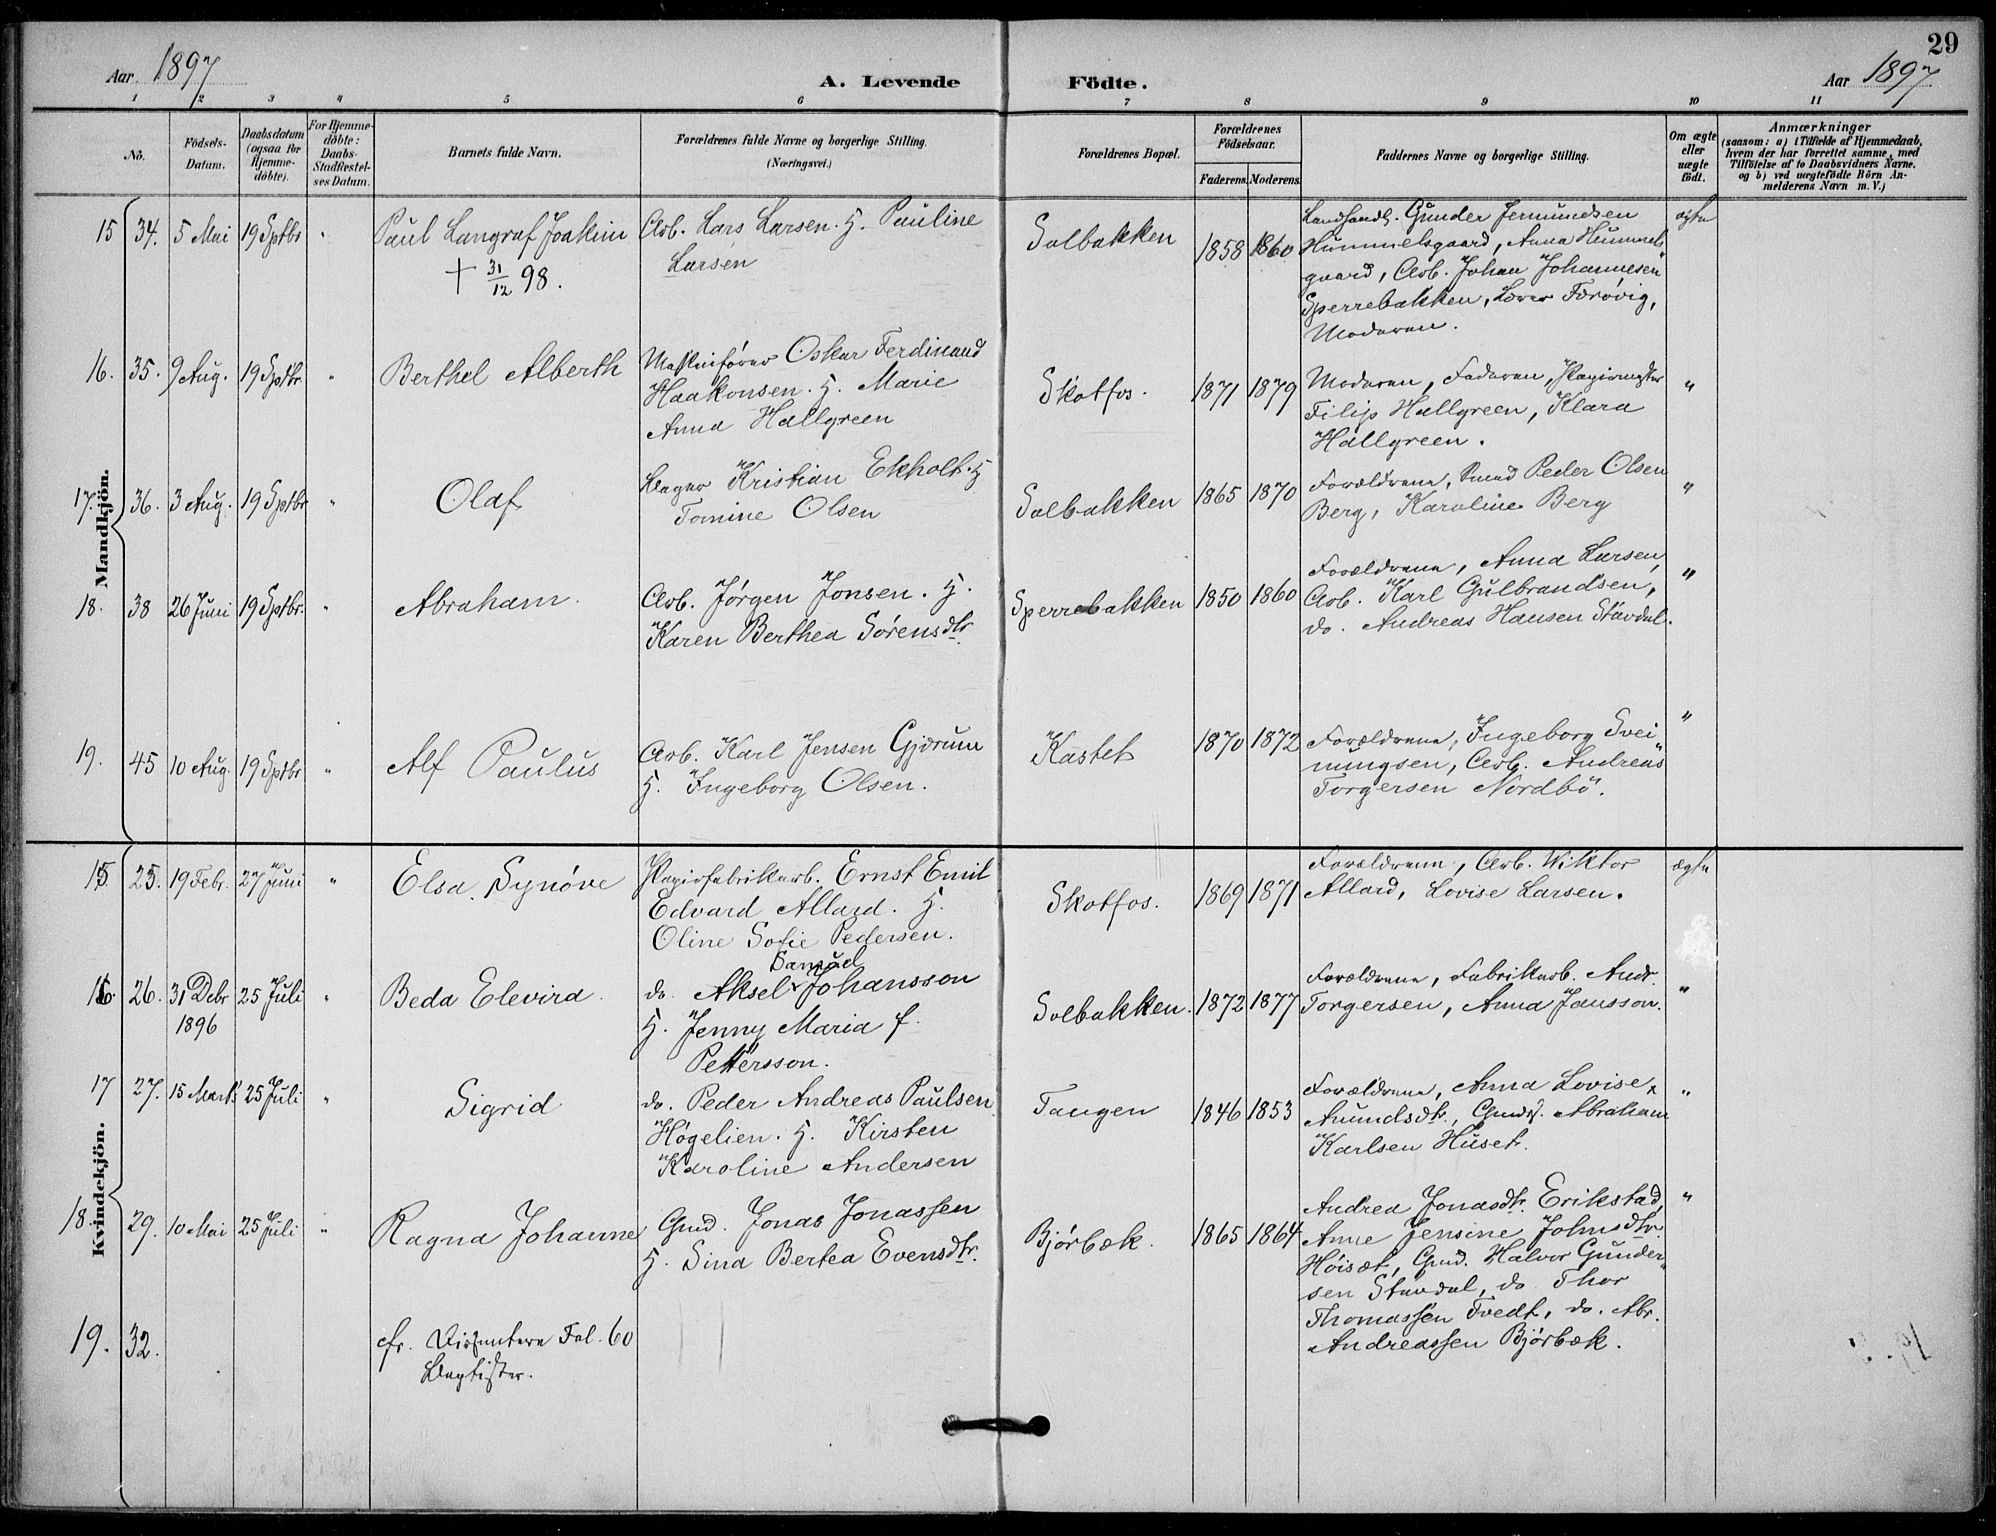 29
Aar 1897
A. Levende Födte.
Aar 1897
1 2 3 4 5 6 7 8 9 10 11
No.
Födsels-
Datum.
Daabsdatum
(ogsaa for
Hjemme-
döbte).
For Hjemme-
döbte:
Daabs-
Stadfæstel-
ses Datum.
Barnets fulde Navn.
Forældrenes fulde Navne og borgerlige Stilling.
(Næringsvei.)
Forældrenes Bopæl.
Forældrenes
Födselsaar.
Faderens. Moderens.
Faddernes Navne og borgerlige Stilling.
Om ægte
eller
uægte
födt.
Anmærkninger
(saasom: a) i Tilfælde af Hjemmedaab,
hvem der har forrettet samme, med
Tilföielse af to Daabsvidners Navne.
og b) ved uægtefödte Börn An-
melderens Navn m. V.)
Mandkjön.
15 34. 5 Mai 19 Sptbr "
Paul Langraf Joakim
+ 31/12 98.
Arb. Lars Larsen. H. Pauline
Larsen
Solbakken
1858 1860
Landhandl. Gunder Jermundsen
Hummelsgaard, Anna Hummels-
gaard, Arb. Johan Johannesen
Sperrebakken, Lærer Færøvig,
Moderen.
ægte
16. 35. 9 Aug. 19 Sptbr "
Berthel Alberth
Maskinfører Oskar Ferdinand
Haakonsen. H. Marie
Anna Hallgreen
Skotfos.
1871 1879
Moderen, Faderen, Papirmester
Filip Hallgreen, Klara
Hallgreen.
"
17. 36. 3 Aug. 19 Sptbr "
Olaf
Bager Kristian Ekholt. H
Tomine Olsen
Solbakken
1865 1870
Forældrene, Smed Peder Olsen
Berg, Karoline Berg
"
18. 38 26 Juni 19 Sptbr. "
Abraham.
Arb. Jørgen Jonsen. H.
Karen Berthea Sørensdtr.
Sperrebakken
1850 1860
Forældrene, Anna Larsen,
Arb. Karl Gulbrandsen,
do. Andreas Hansen Stavdal.
"
19. 45 10 Aug. 19 Sptbr "
Alf Paulus
Arb. Karl Jensen Gjærum
H. Ingeborg Olsen.
Kastet
1870 1872
Forældrene, Ingeborg Svei-
nungsen, Arb. Andreas
Torgersen Nordbö.
"
Kvindekjön.
15. 25. 19 Febr. 27 Juni "
Elsa Synöve
Papirfabrikarb. Ernst Emil
Edvard Allard. H.
Oline Sofie Pedersen.
Skotfos.
1869 1871
Forældrene, Arb. Wiktor
Allard, Lovise Larsen.
ægte
16. 26. 31 Debr 25 Juli "
1896
Beda Elevira.
Samuel
do. Aksel Johansson
H. Jenny Maria f.
Pettersson.
Solbakken.
1872 1877
Forældrene, Fabrikarb. Andr.
Torgersen, Anna Jansson.
"
17 27. 15 Marts 25 Juli "
Sigrid
do. Peder Andreas Paulsen
Høgelien. H. Kirsten
Karoline Andersen
Tangen
1846 1853
Forældrene, Anna Lovise
Amundsdtr., Gmdsf. Abraham
Karlsen Huset.
"
18. 29. 10 Mai 25 Juli "
Ragna Johanne
Gmd. Jonas Jonassen
H. Sina Bertea Evensdtr.
Bjørbæk.
1865 1864
Andrea Jonasdtr. Erikstad,
Anne Jensine Johnsdtr.
Höisæt, Gmd. Halvor Gunder-
sen Stavdal, do Thor
Thomassen Tvedt, do. Abr.
Andreassen Bjørbæk.
"
19. 32.
cfr. Dissentere Fol. 60
Baptister.